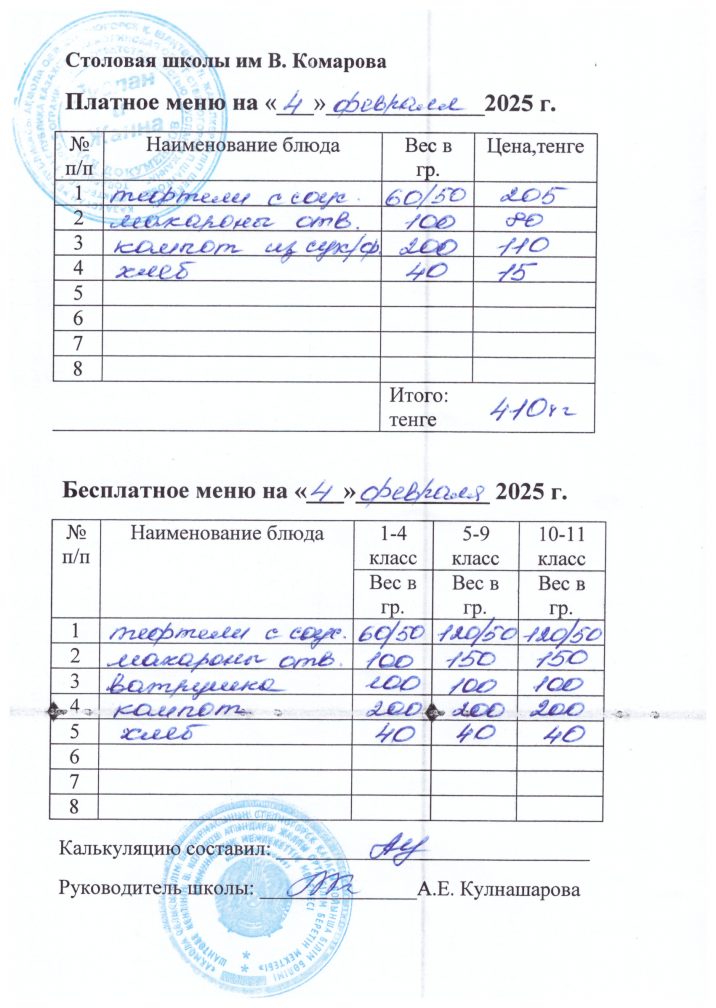 Столовая школы им В. Комарова
Платное меню на «4» февраля 2025 г.
№ п/п Наименование блюда Вес в гр. Цена,тенге
1 тефтели с соус. 60/50 205
2 макароны отв. 100 80
3 компот из сух/ф. 200 110
4 хлеб 40 15
5
6
7
8
Итого: тенге 410тг
Бесплатное меню на «4» февраля 2025 г.
№ п/п Наименование блюда 1-4 класс 5-9 класс 10-11 класс
Вес в гр. Вес в гр. Вес в гр.
1 тефтели с соус. 60/50 120/50 120/50
2 макароны отв. 100 150 150
3 ватрушка 100 100 100
4 компот 200 200 200
5 хлеб 40 40 40
6
7
8
Калькуляцию составил:
Руководитель школы: А.Е. Кулнашарова